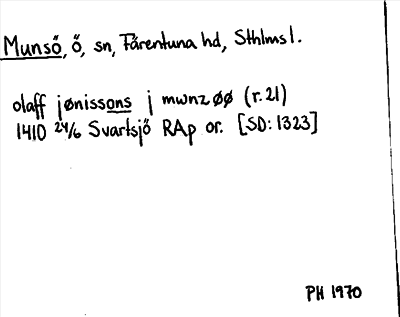 Munsö, ö, sn, Färentuna hd, Sthlms l.
olaff jønissons j mwnzøø (r. 21)
1410 24/6 Svartsjö RAp or. [SD: 1323]
PH 1970